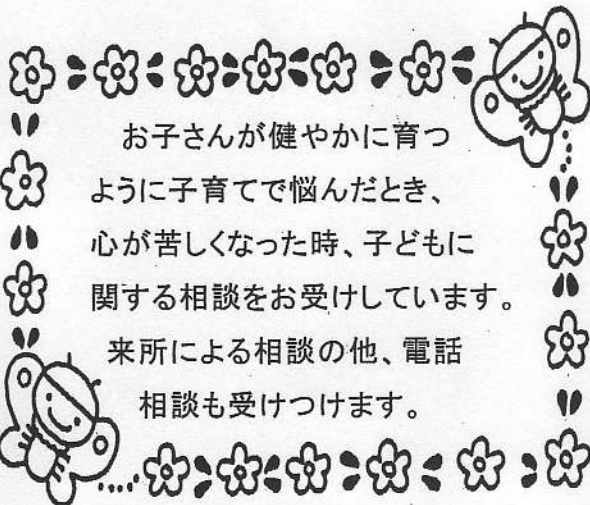 お子さんが健やかに育つ
ように子育てで悩んだとき、
心が苦しくなった時、子どもに
関する相談をお受けしています。
来所による相談の他、電話
相談も受けつけます。